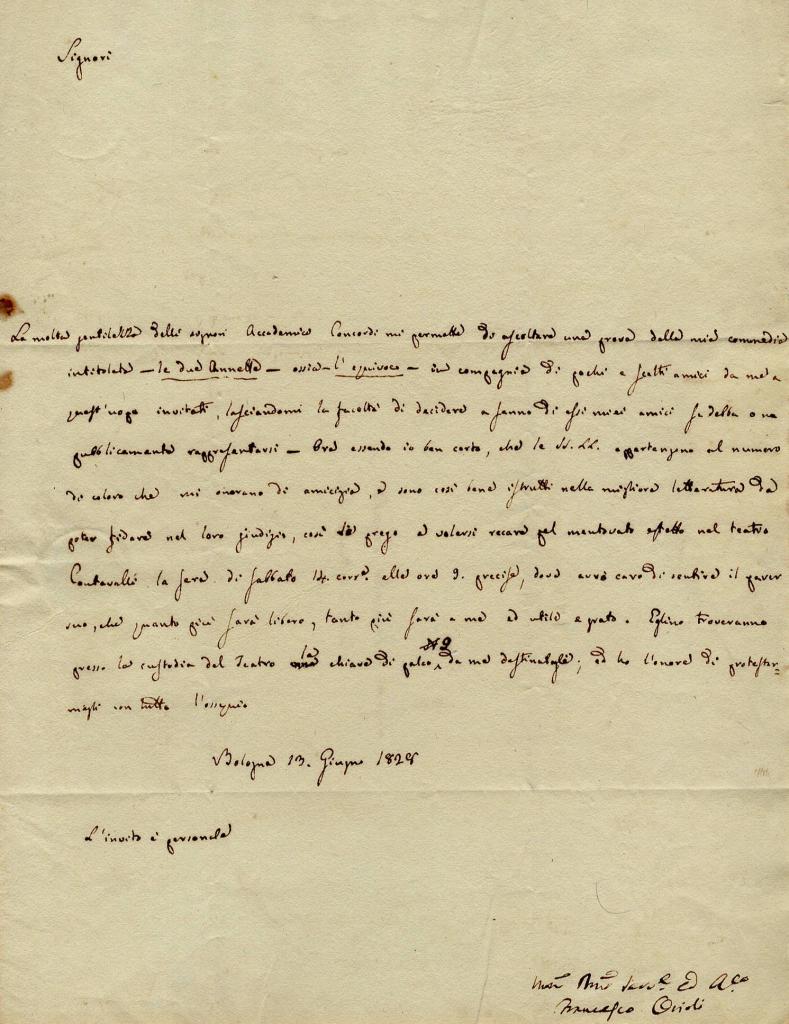 Signori
La molta gentilezza delli signori Accademici Concordi mi permette di ascoltare una prova della mia commedia
intitolata – le due Annette – ossia – l'equivoco – in compagnia di pochi e scelti amici da me a
quest'uopo invitati, lasciandomi la facoltà di decidere a senno di essi miei amici se debba o no
pubblicamente rappresentarsi – Ora essendo io ben certo, che le SS. LL. appartengono al numero
di coloro che mi onorano di amicizia, e sono così bene istrutti nella migliore letteratura da
poter fidare nel loro giudizio, così le prego a volersi recare pel mentovato effetto nel teatro
Contavalli la sera di sabbato 14. corr.e alle ore 9. precise, dove avrò caro di sentire il parer
suo, che quanto più sarà libero, tanto più sarà a me ed utile e grato. Eglino troveranno
presso la custodia del Teatro la chiave di palco 2 da me destinatole; ed ho l'onore di protestar=
megli con tutto l'ossequio
Bologna 13. Giugno 1828
L'invito è personale
Servre Ed A.co
Francesco